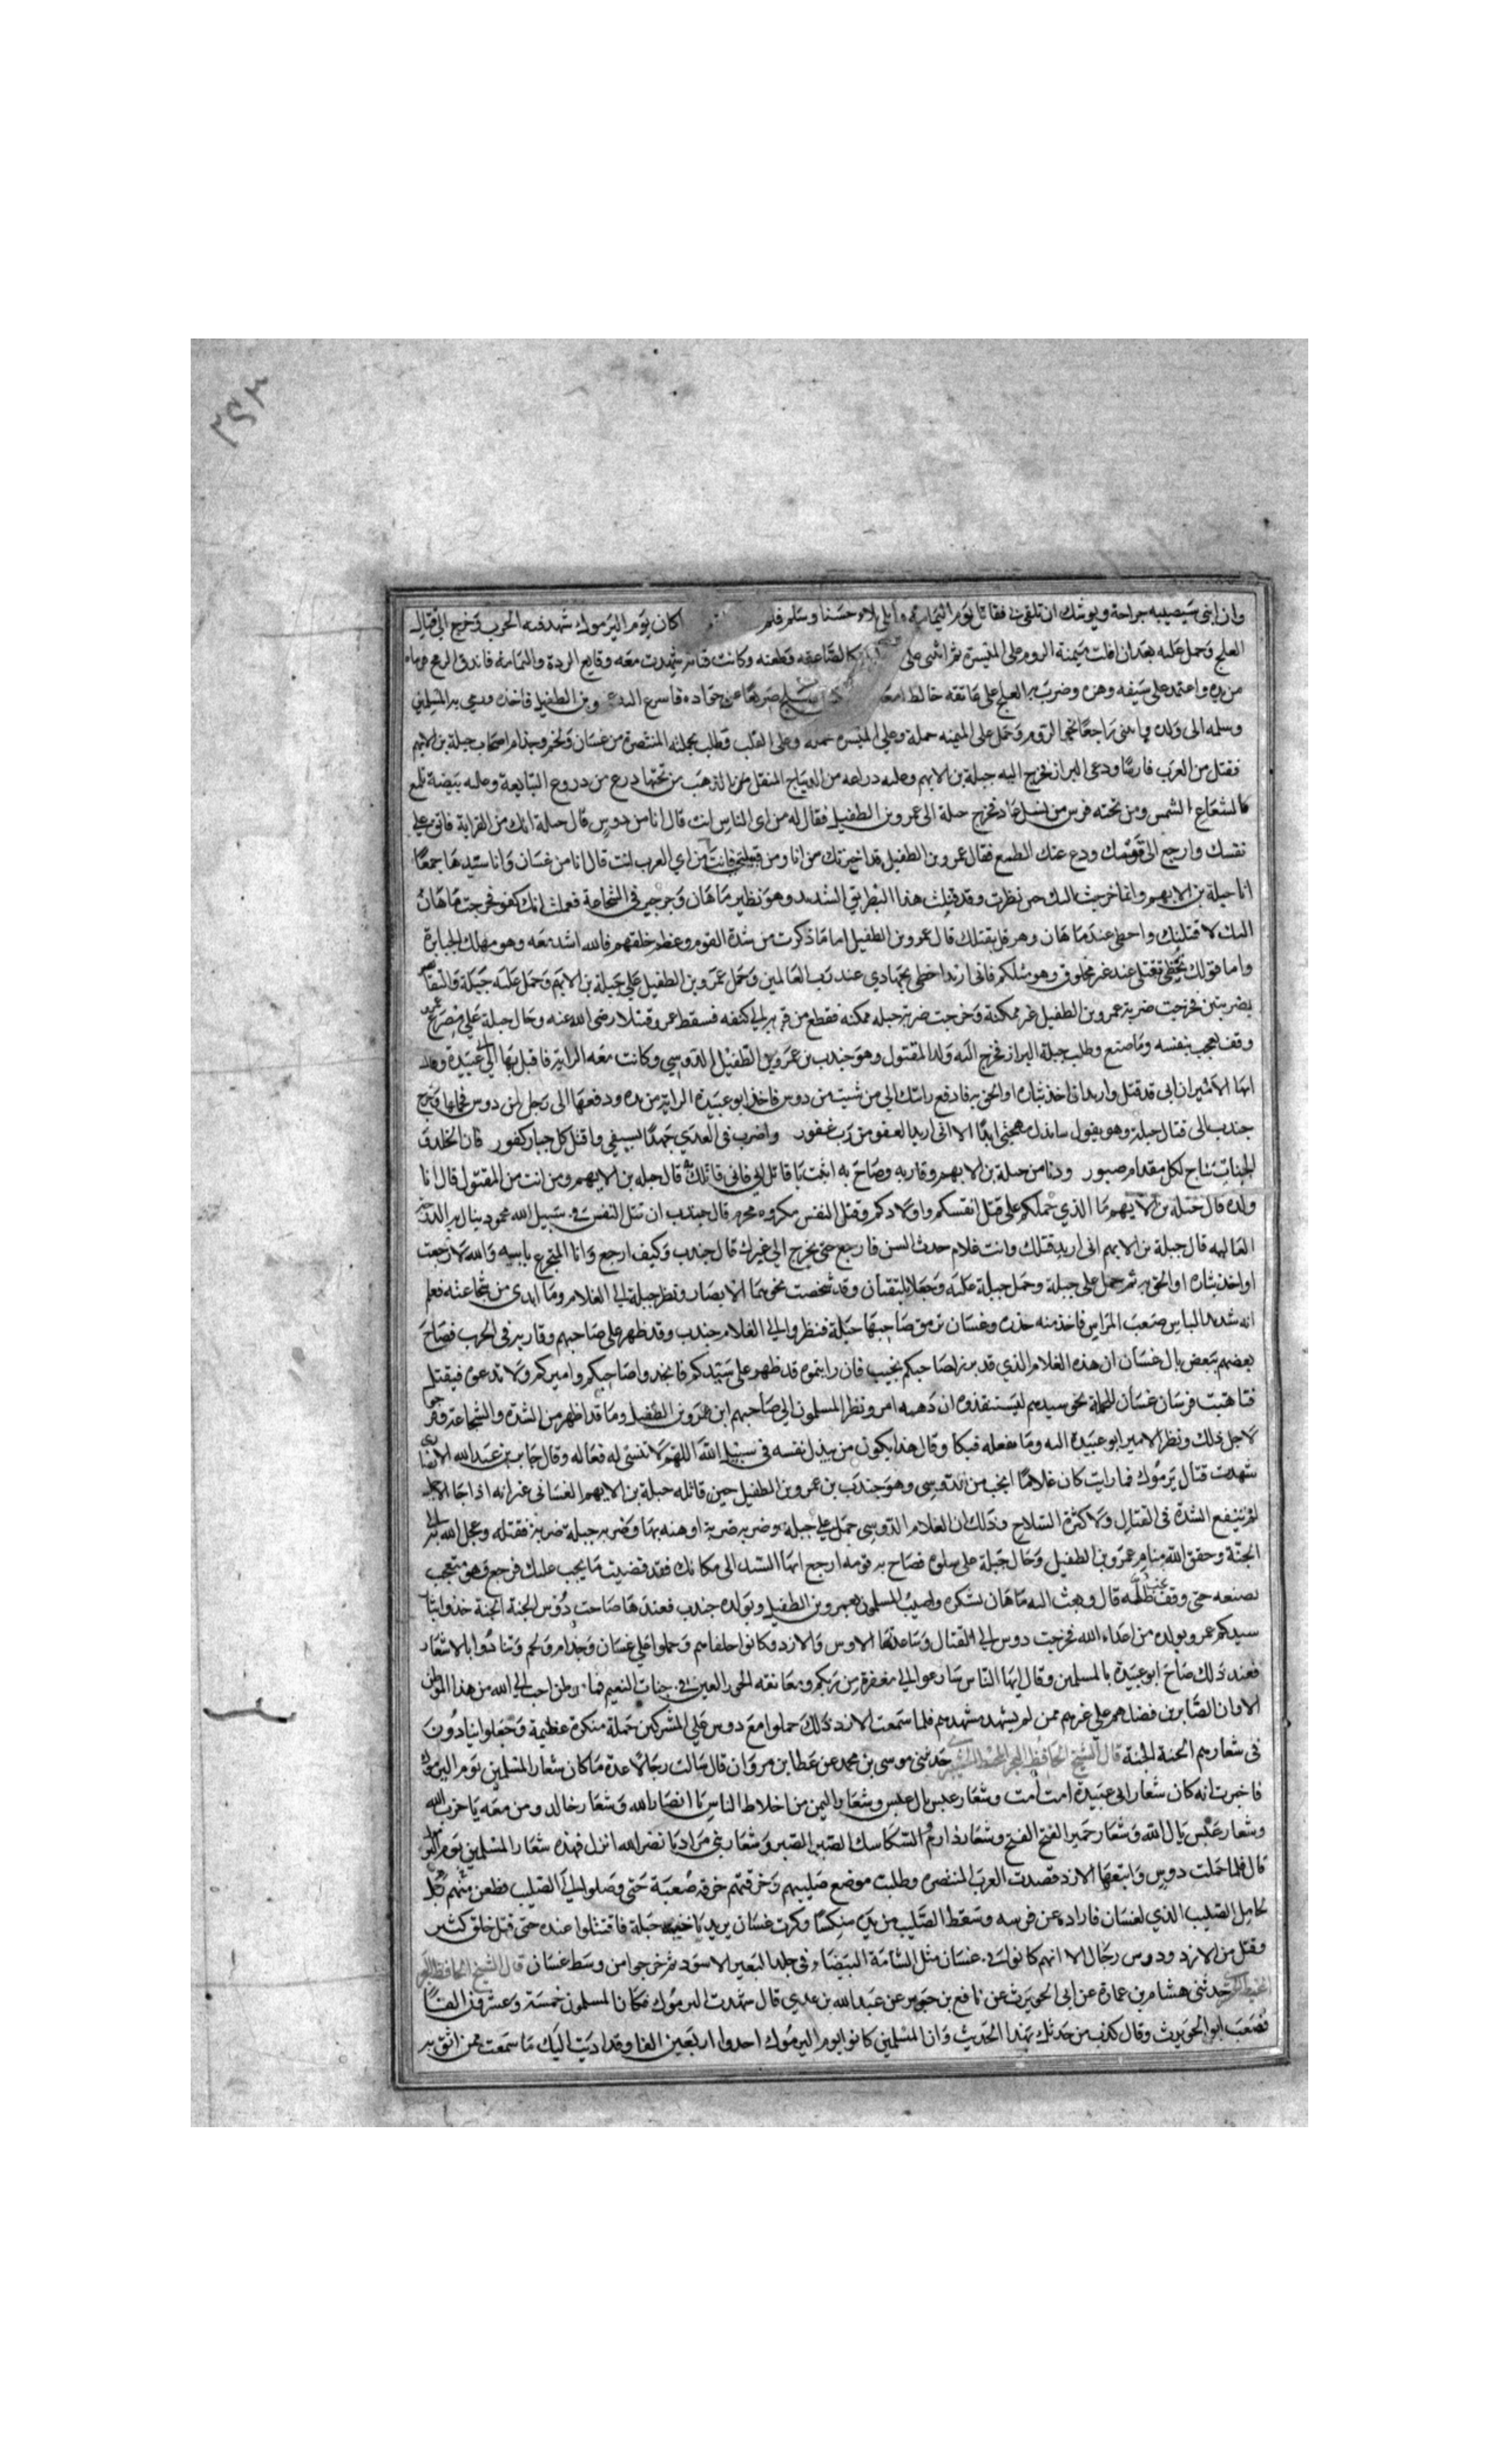 وان ابنى سيصيبه جراحة ويوشك ان تلقونى فقاتل يوم اليمامة وابلى بلاء حسنا وسلم فلم كان يوم اليرموك شهد فيه الحرب وخرج الى قتال
العلج وحمل عليه بعد ان اقلب ميمنة الروم على الميسرة ثم انثنى على كالصاعقة وطعنه وكانت شهدت معه وقايع الردة واليمامة فاندق الرمح
من يده واعتمد على سيفه وهزه وضرب به العلج على عاتقه خالط امعا صريعا عن جواده فاسرع بن الطفيل فاخذ
وسلمه الى ولده وانثنى راجعا نحو الروم وحمل على الميمنه حملة وعلى الميسره حمله وعلى القلب وطلب بحملته المتنصرة من غسان ولخم وجذام اصحاب جبلة بن الايهم
فقتل من العرب فارسا ودعى البراز فخرج اليه جبلة بن الايهم وعليه دراعه من الديباج المثقل بالذهب من تحتها درع من دروع التبابعة وعليه بيضة تلمع
كالشعاع الشمس ومن تحته فرس من نسل عاد فخرج جبلة الى عمرو بن الطفيل فقال له من اى الناس انت قال انا من دوس قال جبلة انك من القرابة فاتق على
نفسك وارجع الى قومك ودع عنك الطمع فقال عمرو بن الطفيل قد اخبرتك من انا ومن قبيلتى فانت من اي العرب انت قال انا من غسان وانا سيدها جمعا
انا جبلة بن الايهم وانما خرجت اليك حين نظرت وقد قتلت هذا البطريق الشديد وهو نظير ماهان وجرجير في الشجاعة فعلمت انك كفو فخرجت
اليك لاقتلنك واحظى عند ماهان وهرقل بقتلك قال عمرو بن الطفيل اما ما ذكرت من شدة القوم وعظم خلقهم فالله اشد منه وهو مهلك الجبابرة
واما قولك تحظى بقتلى عند مخلوق وهو مثلكم فانى اريد احظى بجهادي عند رب العالمين وحمل عمرو بن الطفيل على جبلة بن الايهم وحمل عليه جبلة والتقيا
بضربتين فخرجت ضربة عمرو بن الطفيل غير ممكنة وخرجت ضربة جبله ممكنه فقطع من الى كتفه فسقط عمرو قتيلا رضى الله عنه وجال جبلة على مصرع عمرو
وقف يعجب بنفسه وما صنع وطلب جبلة البراز فخرج اليه ولد المقتول وهو جندب بن عمرو بن الطفيل الدوسي وكانت معه الراية فاقبل بها الى ابى عبيدة وقال
ايها الامير ان ابى قد قتل واريد ان اخذ بثاره او الحق به فادفع رايتك الي من شيت من دوس فاخذ ابو عبيدة الراية من يده ودفعها الى رجل من دوس فحملها وخرج
جندب الى قتال جبلة وهو يقول سابذل مهجتى ابدا الا انى اريد العفو من رب غفور واضرب فى العدي جهدا بسيفي واقتل كل جبار كفور فان الخلد فى
الجنات تباح لكل مقدام صبور ودنا من جبلة بن الايهم وقاربه وصاح به اثبت يا قاتل ابي فانى قاتلك قال جبله بن الايهم ومن انت من المقتول قال انا
ولده قال جبله بن الايهم ما الذي حملكم على قتل انفسكم واولادكم وقتل النفس مكروه محرم قال جندب ان قتل النفس فى سبيل الله محمود ينال به الدرجة
العاليه قال جبلة بن الايهم انى اريد قتلك وانت غلام حدث السن فارجع حتى يخرج الي غيرك قال جندب وكيف ارجع وانا المتجرع بابيه والله لا رجعت
او اخذ بثاره او الحق به ثم حمل على جبلة وحمل جبلة عليه وجعلا يلتقيان وقد شخصت نحوهما الابصار ونظر جبلة الى الغلام وما ابدى من شجاعته فعلم
انه شديد الباس صعب المراس فاخذ منه حذره وغسان ترمق صاحبها جبلة فنظروا الي الغلام جندب وقد ظهر على صاحبهم وقاربه فى الحرب فصاح
بعضهم ببعض يال غسان ان هذه الغلام الذي قد برز لصاحبكم نجيب فان رايتموه قد ظهر على سيدكم فانجدوا صاحبكم واميركم ولا تدعوه فيقتل
فتاهبت فرسان غسان للحملة نحو سيدهم ليستنقذوه ان دهمه امر ونظر المسلمون الى صاحبهم ابن عمرو بن الطفيل وما قد ظهر من الشدة والشجاعة
لاجل ذلك ونظر الامير ابو عبيدة اليه وما يفعله فبكا وقال هذا يكون من يبذل نفسه فى سبيل الله اللهم لا تنسى له فعاله وقال جابر بن عبد الله الانصارى
شهدت قتال يرموك فما رايت كان غلاما انجب من الدوسى وهو جندب بن عمرو بن الطفيل حين قاتله جبلة بن الايهم الغسانى غير انه اذا جا الاجل
لم تنفع الشدة فى القتال ولا كثرة السلاح وذلك ان الغلام الدوسى حمل على جبلة وضربه ضربة اوهنه بها وضربه جبلة ضربة فقتله وعجل الله به الى
الجنة وحقق الله منام عمرو بن الطفيل وجال جبلة على سلوه فصاح به قومه ارجع ايها السيد الى مكانك فقد قضيت ما يجب عليك فرجع وهو متعجب
بصنعه حتى وقف تحت ظله قال وبعث اليه ماهان بشكره واصيب المسلمون بعمرو بن الطفيل وبولده جندب فعندها صاحت دوس الجنة الجنة خذوا بثار
سيدكم عمرو وبولده من اعداء الله فخرجت دوس الى القتال وساعدتها الاوس والازد وكانوا حلفاهم وحملوا على غسان وجذام ولخم وتنادوا بالاشعار
فعند ذلك صاح ابو عبيدة بالمسلمين وقال ايها الناس سارعوا الي مغفرة من ربكم ومعانقه الحور العين فى جنات النعيم فما وطن احب الي الله من هذا الموطن
الا وان الصابرين فضلهم على غيرهم ممن لم يشهد مشهدهم فلما سمعت الازد ذلك حملوا مع دوس على المشركين حملة منكرة عظيمة وجعلوا ينادون
فى شعارهم الجنة الجنة قال الشيخ الحافظ حدثنى موسى بن محمد عن عطا بن مروان قال سالت رجالا عدة ما كان شعار المسلمين يوم اليرموك
فاخبرت انه كان شعار ابى عبيدة امت امت وشعار عبس يال عبس وشعار اليمن من اخلاط الناس يا انصار الله وشعار خالد ومن معه يا حزب الله
وشعار عنس يال الله وشعار حمير الفتح الفتح وشعار دارم والسكاسك الصبر الصبر وشعار بنى مراد يا نصر الله انزل فهذه شعار المسلمين يوم اليرموك
قال فلما حملت دوس واتبعها الازد قصدت العرب المتنصره وطلبت موضع صليبهم وخرقتهم خرقة صعبة حتى وصلوا الي الصليب فطعن منهم رجل
لحامل الصليب الذي لغسان فارداه عن فرسه وسقط الصليب من يده منكسا وكرت غسان يريد ناحية جبلة فاقتتلوا عنده حتى قتل خلق كثير
وقتل من الازد ودوس رجال الا انهم كانوا فى غسان مثل الشامة البيضاء فى جلد البعير الاسود ثم خرجوا من وسط غسان قال الشيخ الحافظ
حدثنى هشام بن عمارة عن ابى الحويرث عن نافع بن جبير عن عبد الله بن عدي قال شهدت اليرموك فكان المسلمون خمسة وعشرون الفا
فصعب ابو الحويرث وقال كذب من حدثك بهذا الحديث وان المسلمين كانوا يوم اليرموك احدوا اربعين الفا وقد اديت اليك ما سمعت ممن اثق به